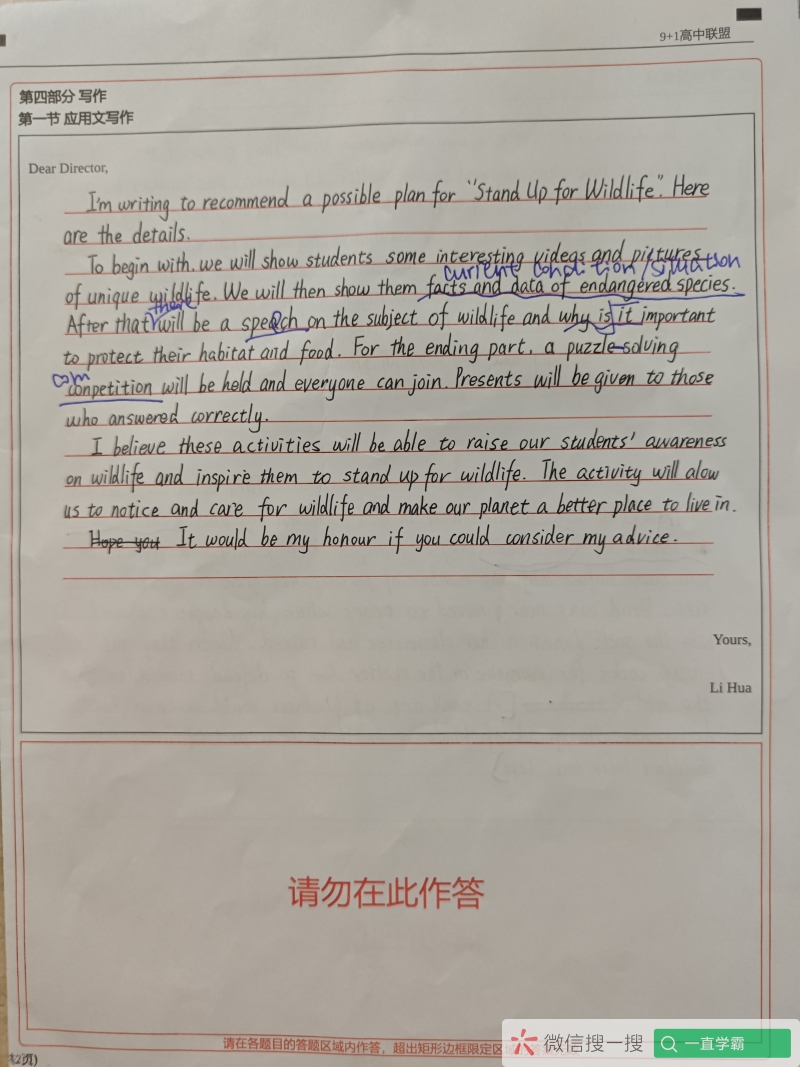 9+1高中联盟
第四部分 写作
第一节 应用文写作
Dear Director,
I'm writing to recommend a possible plan for "Stand Up for Wildlife". Here
are the details.
To begin with, we will show students some interesting videos and pictures
current condition/situation
of unique wildlife. We will then show them facts and data of endangered species.
there
After that will be a speech on the subject of wildlife and why is it important
to protect their habitat and food. For the ending part, a puzzle-solving
com
conpetition will be held and everyone can join. Presents will be given to those
who answered correctly.
I believe these activities will be able to raise our students' awareness
on wildlife and inspire them to stand up for wildlife. The activity will alow
us to notice and care for wildlife and make our planet a better place to live in.
Hope you It would be my honour if you could consider my advice.
Yours,
Li Hua
请勿在此作答
请在各题目的答题区域内作答，超出矩形边框限定区
页)
微信搜一搜
一直学霸